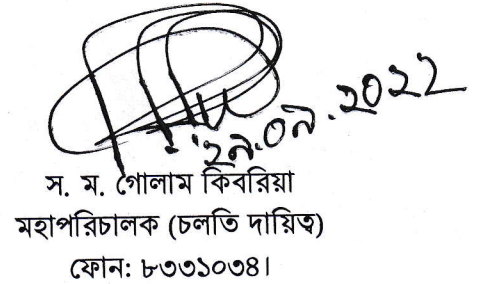 ২৯.০৯.২০২২
স. ম. গোলাম কিবরিয়া
মহাপরিচালক (চলতি দায়িত্ব)
ফোন: ৮৩৩১০৩৪।